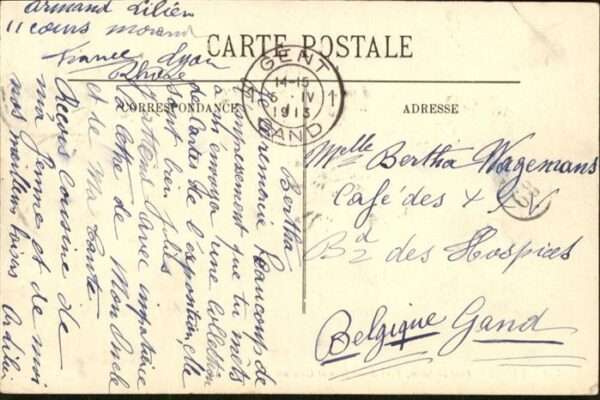 Armand Lilien
11 cours morand
France Lyon
Rhône
CARTE POSTALE
GENT
14-15
5 IV
1913
GAND
CORRESPONDANCE
ADRESSE
Bertha
Je remercie Beaucoup de
l'empressement que tu mets
a m'envoyer une collection
de Cartes de l'exposition, elle
sont bien jolis
J'attens avec impatience
cope de Mon Oncle
et de Ma tante
Recois cousine de
ma femme et de moi
nos meilleurs baisers
Melle Bertha Wagemans
Café des
Bd des Hospices
Belgique Gand